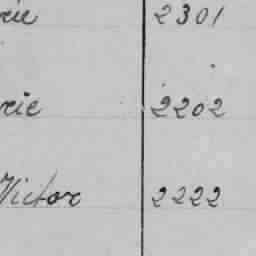 rie 2301
rie 2202
Victor 2222